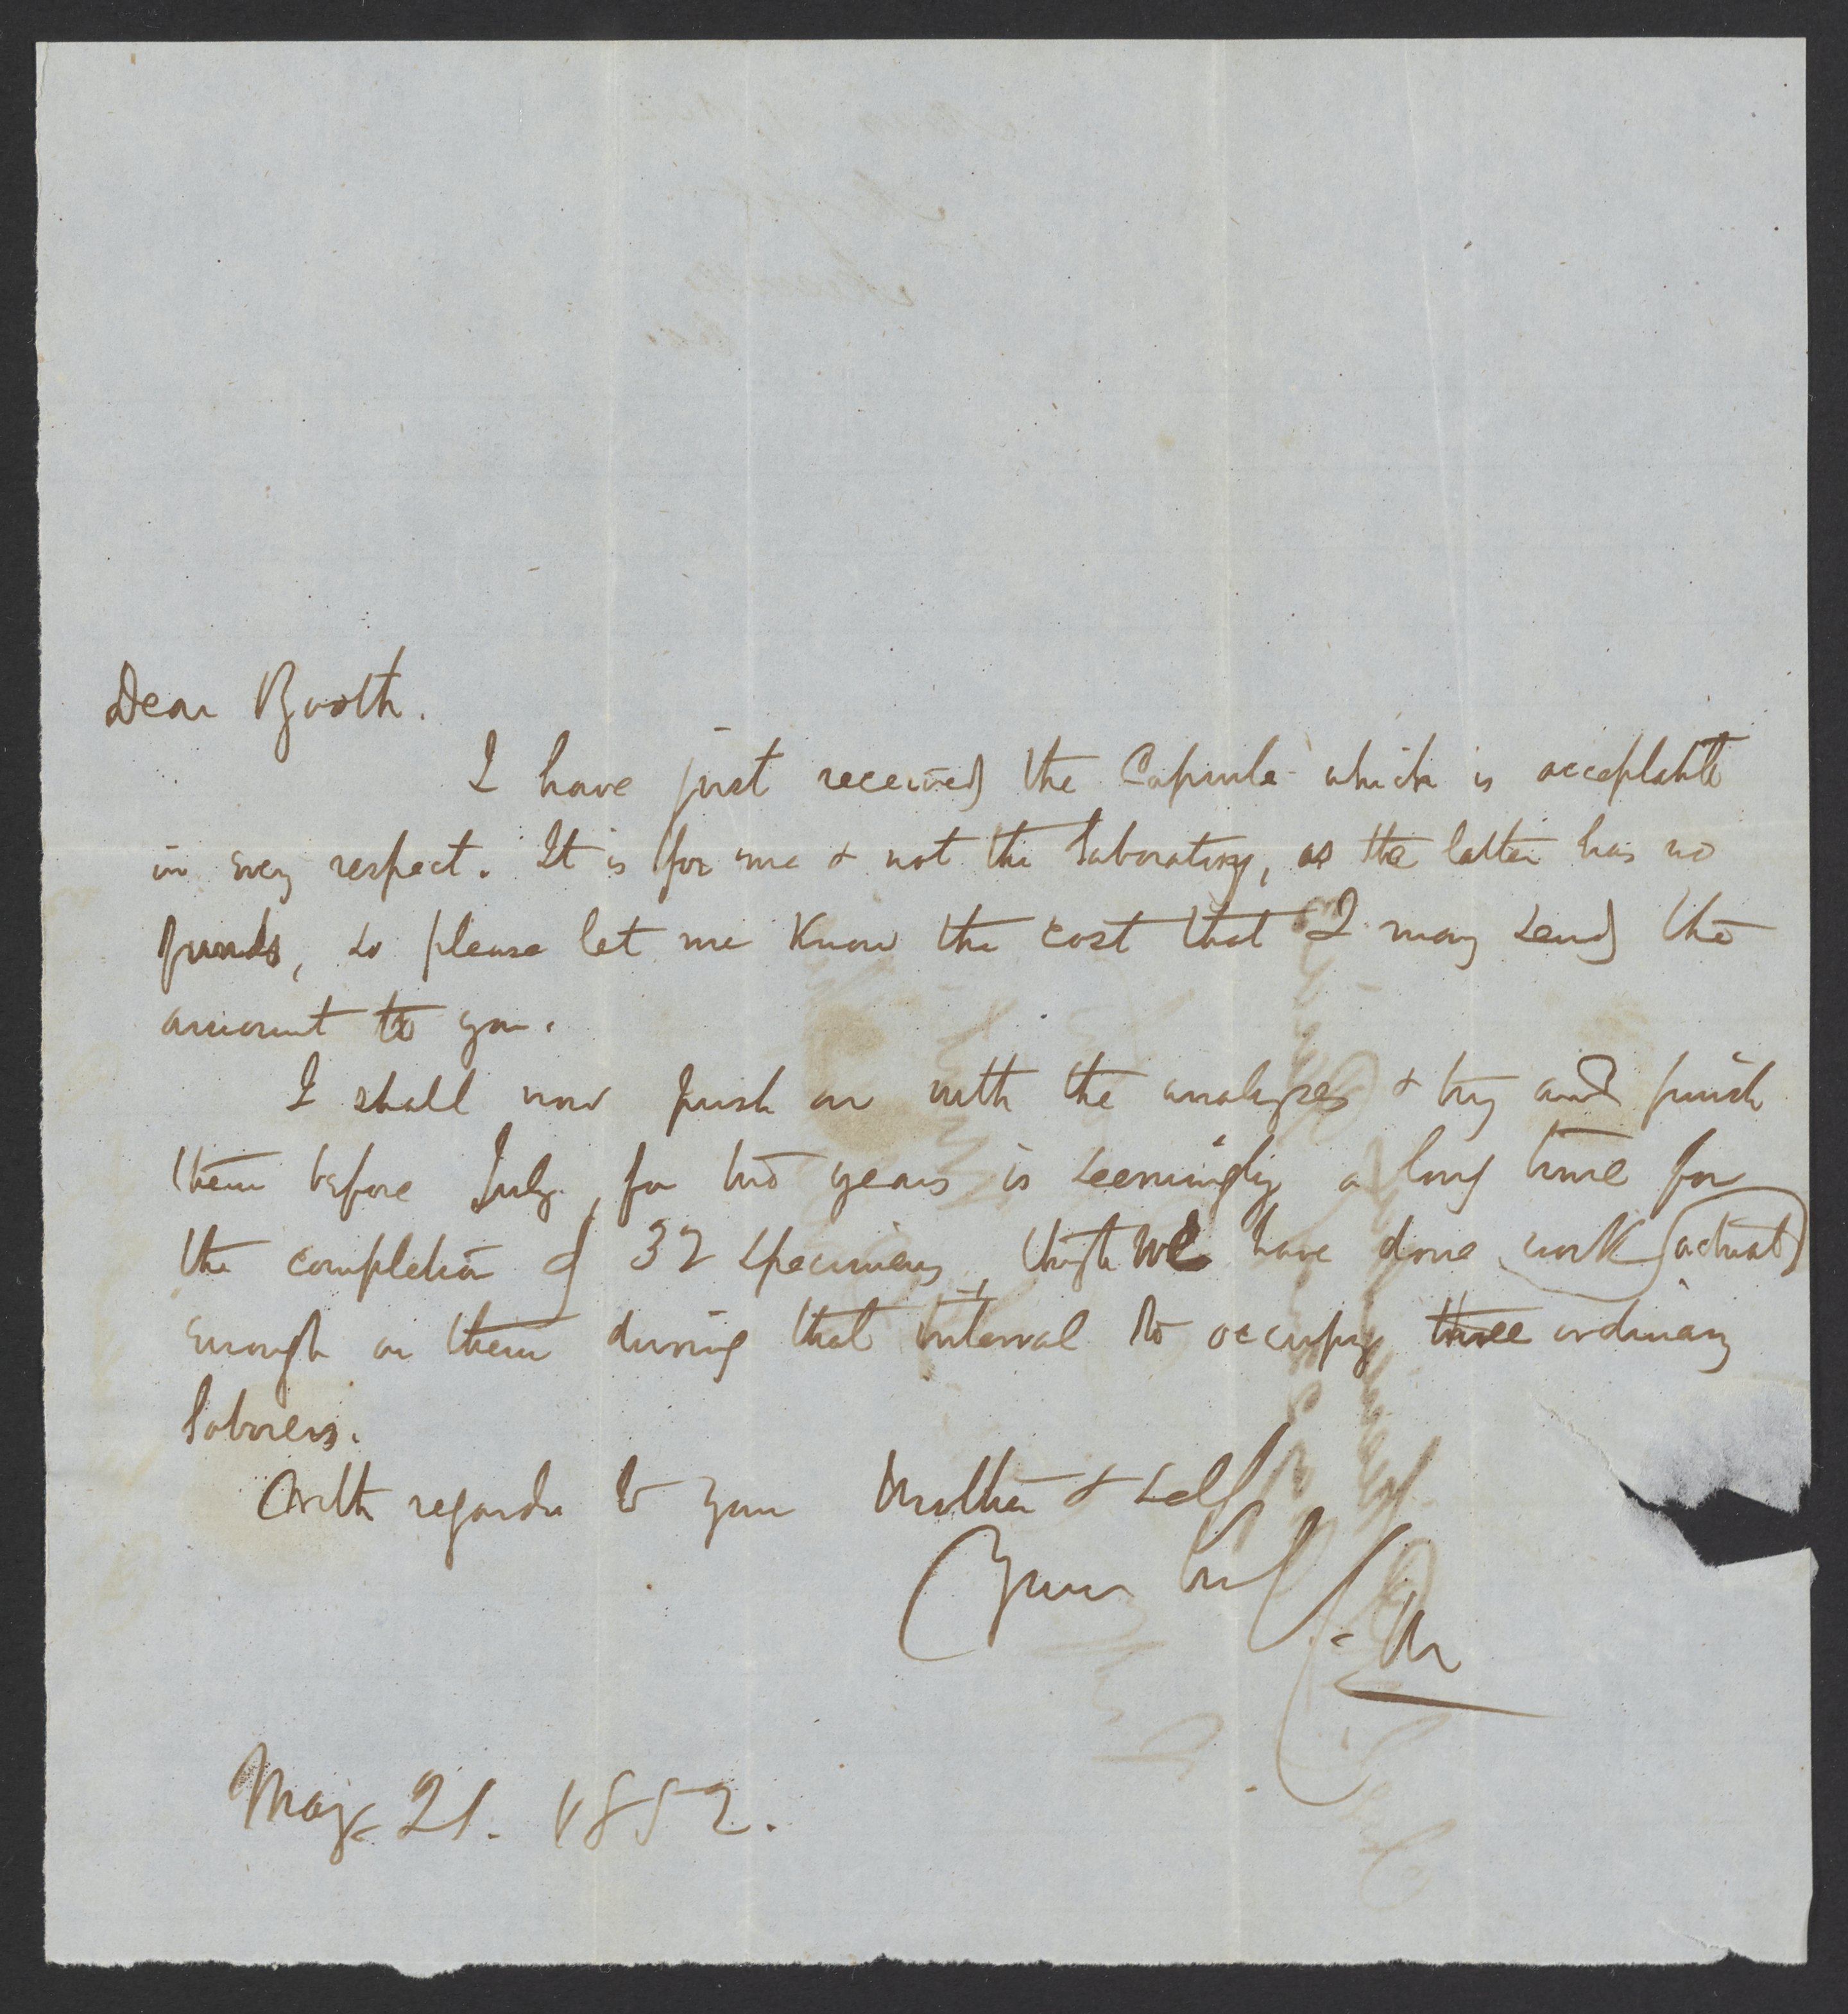 Dear Booth.
I have just received the Capsule which is acceptable
in every respect. It is for me & not the laboratory, as the latter has no
funds, so please let me know the cost that I may send the
amount to you.
I shall now push on with the analyses & try and finish
them before July, for two years is seemingly a long time for
the completion of 32 specimens, though we have done work (actual)
enough on them during that interval to occupy three ordinary
laborers.
With regards to your Mother & self
Yours truly
May 21. 1852.